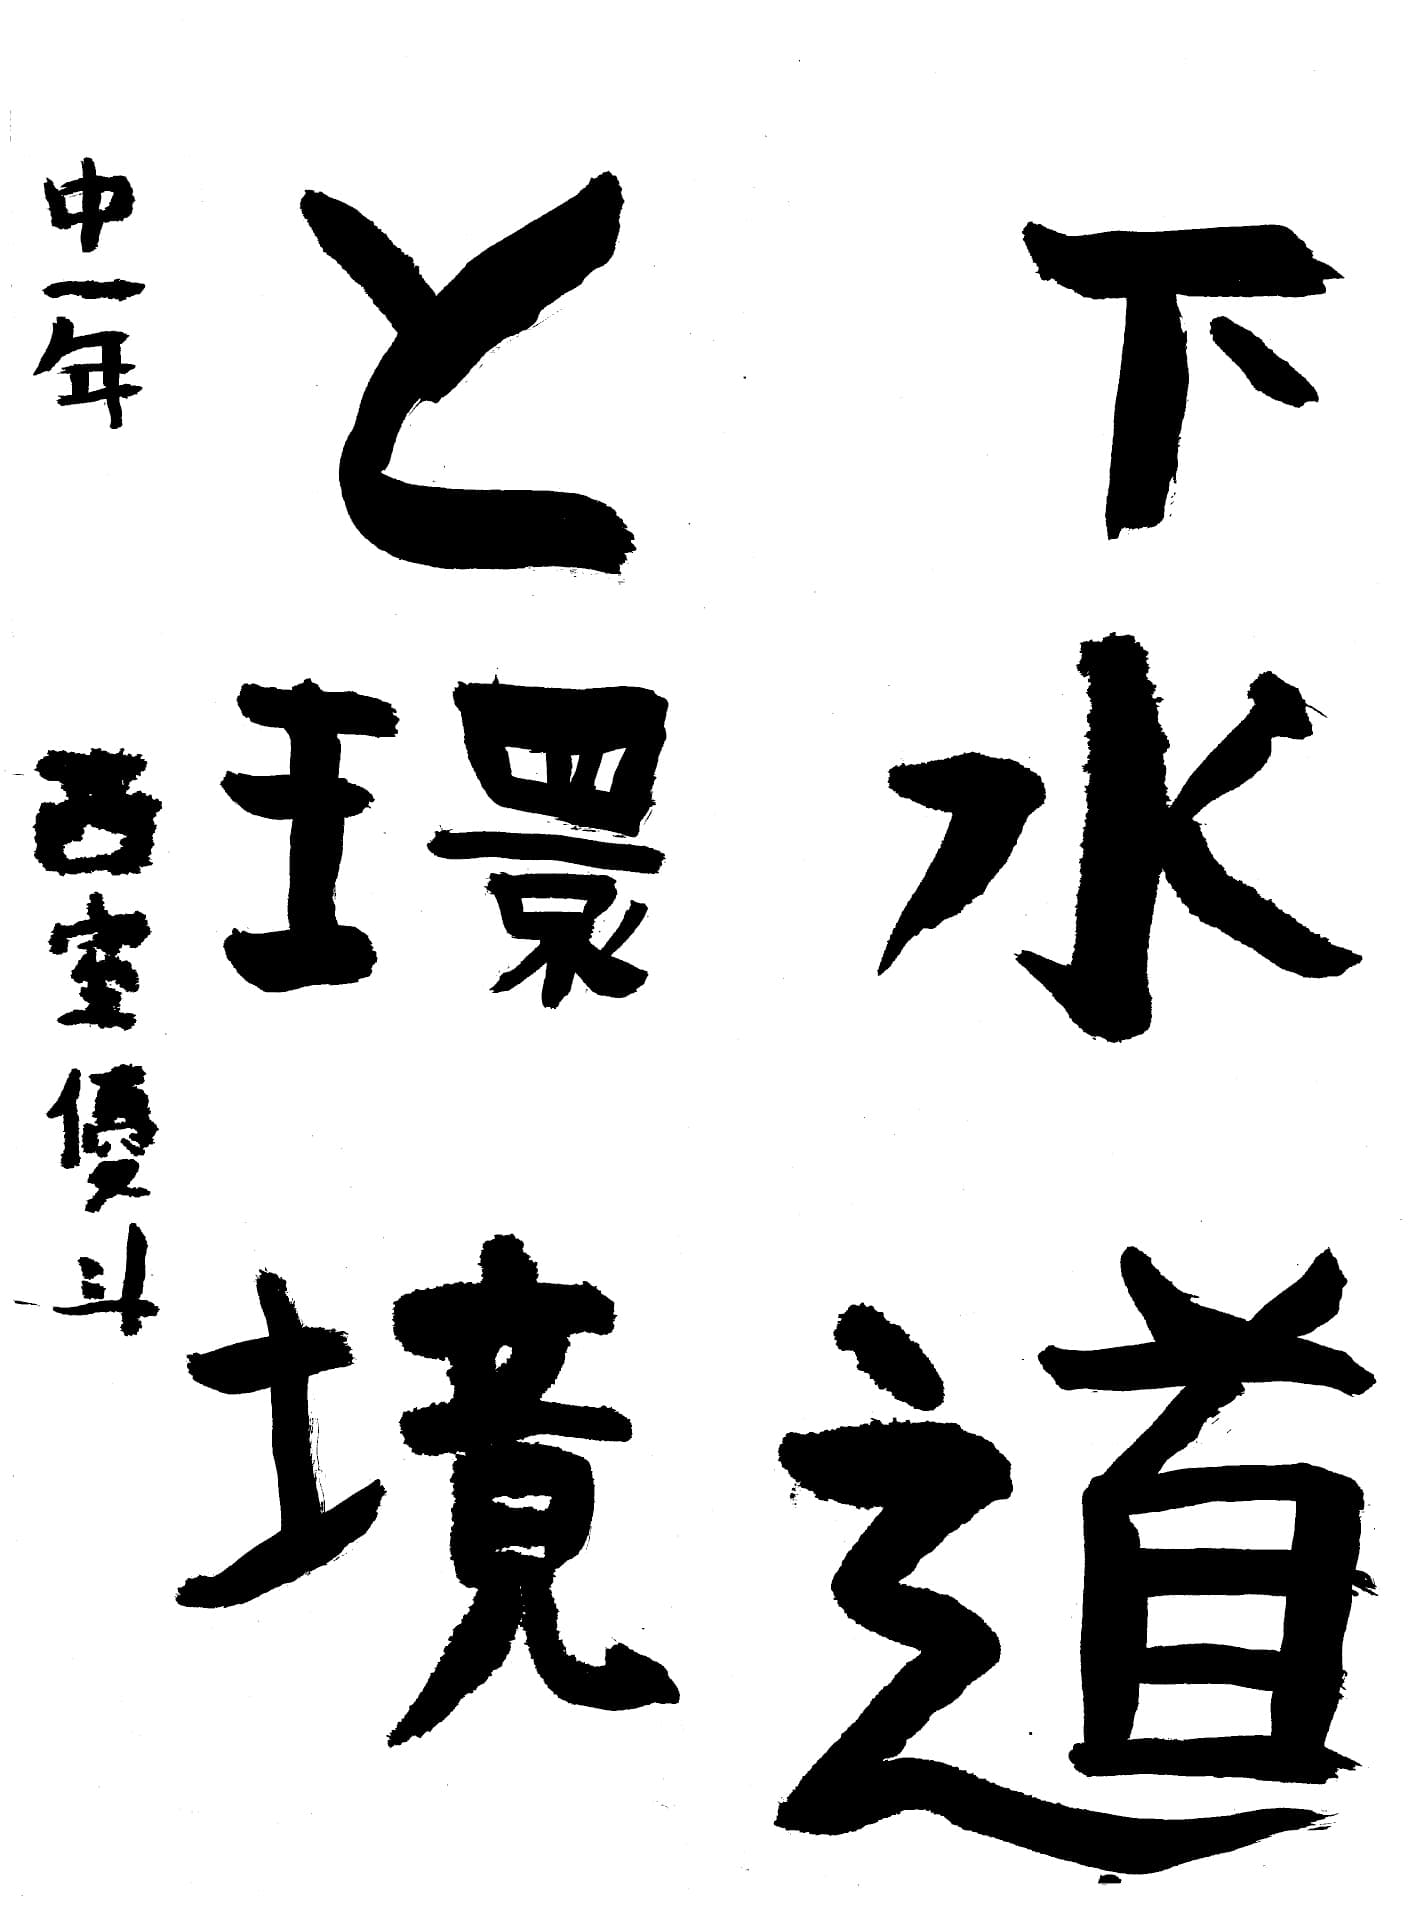 下水道
と環境
中一年 西室優斗